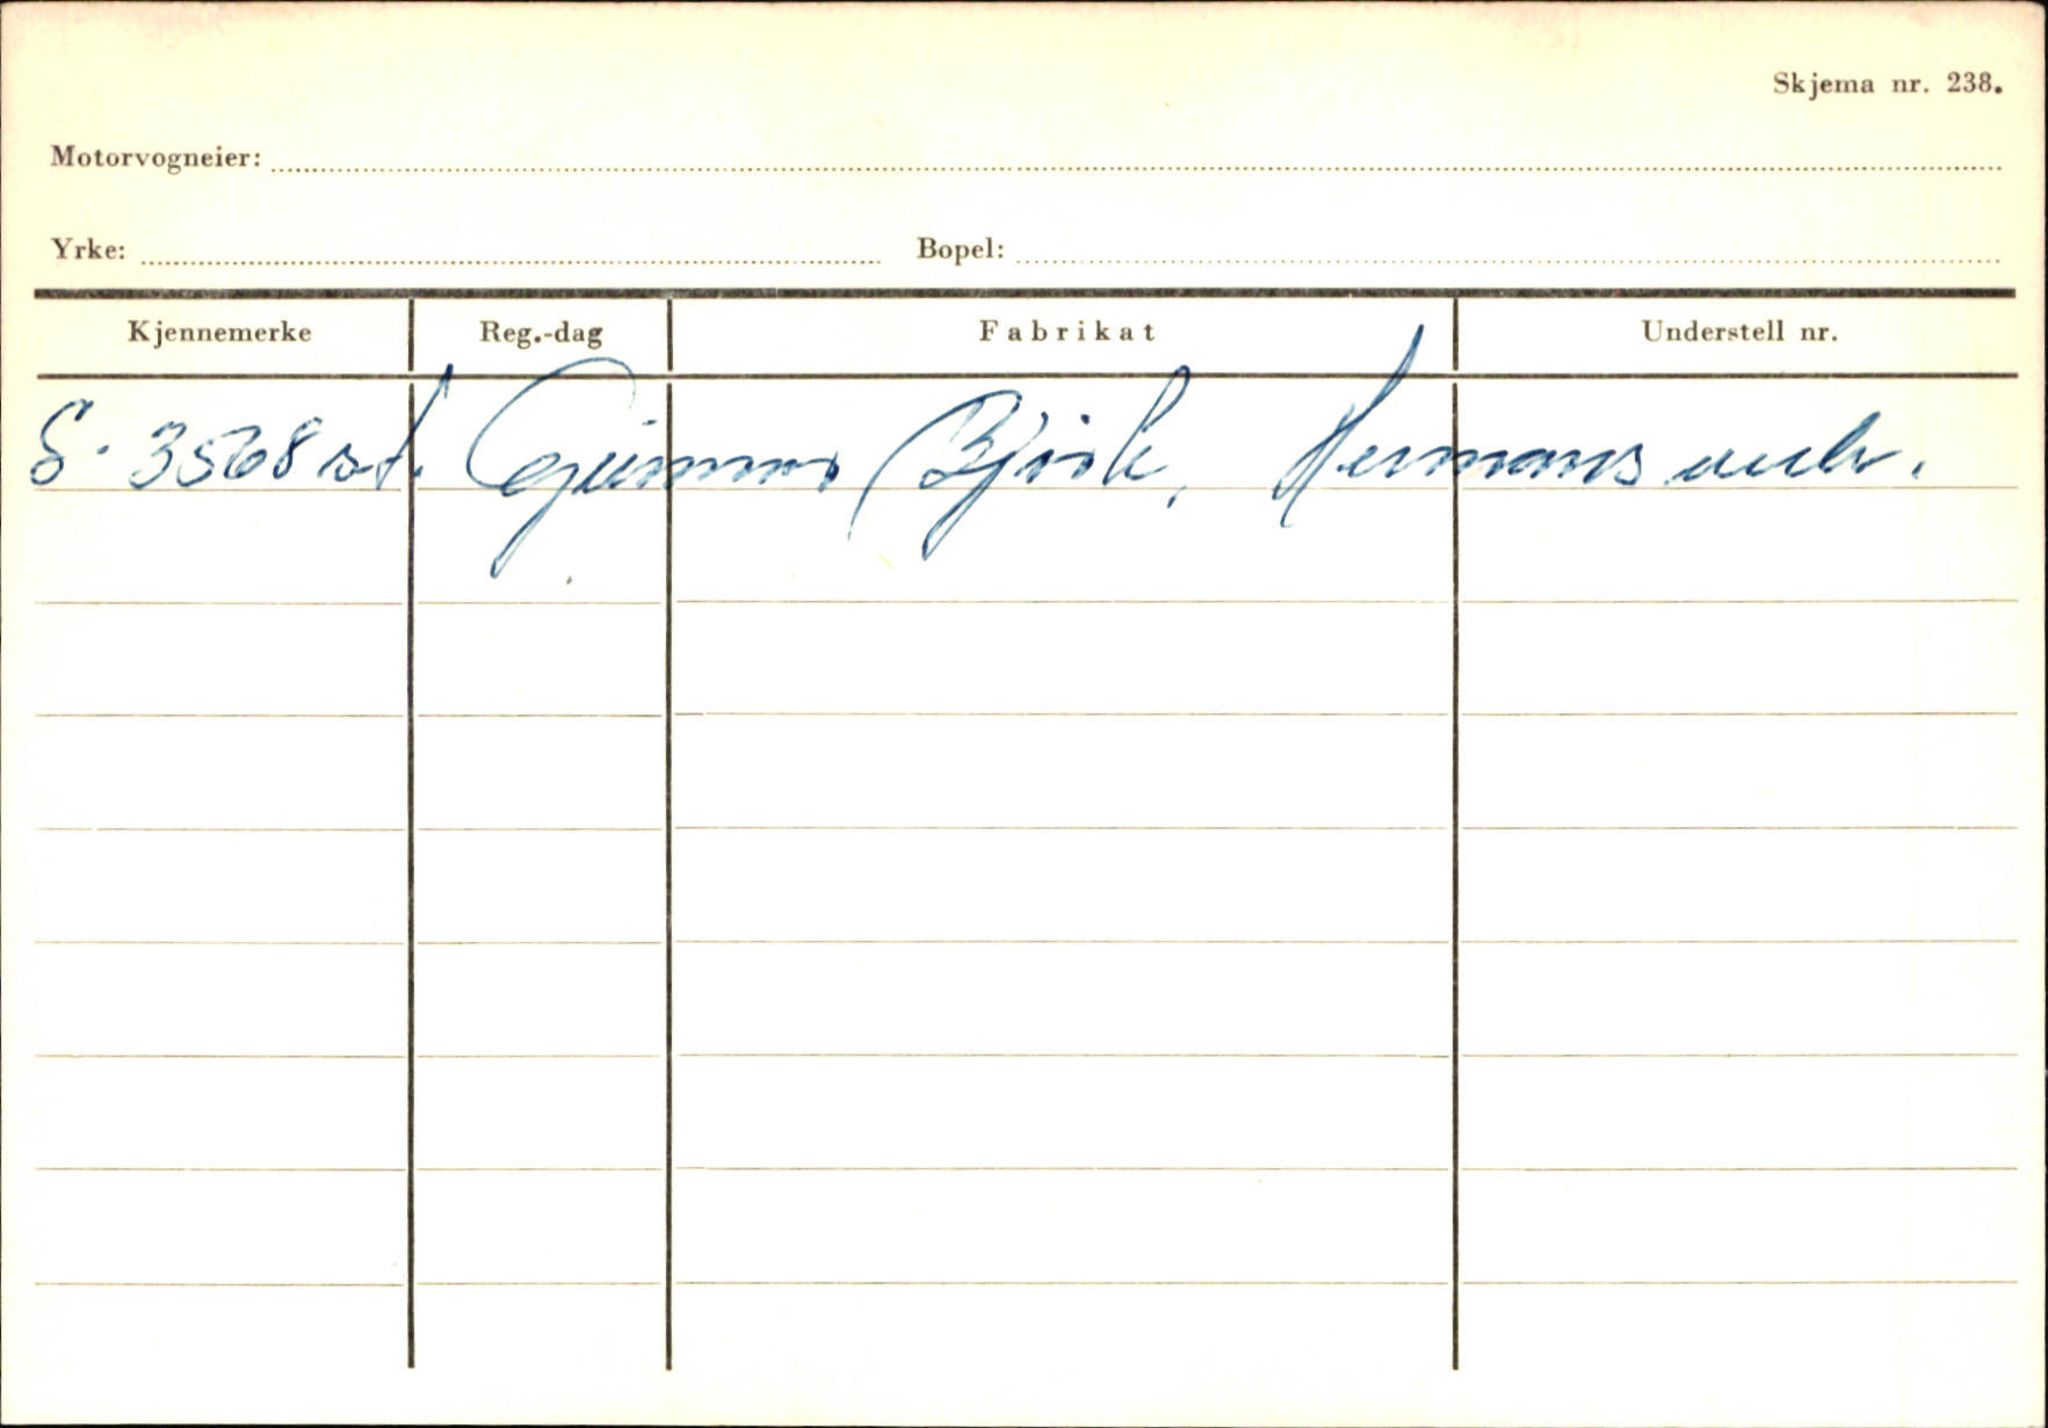 Skjema nr. 238.
Motorvogneier:
Yrke: Bopel:
Kjennemerke Reg.-dag Fabrikat Understell nr.
S. 3568 st. Gunnar Bjørk, Hermansverk.